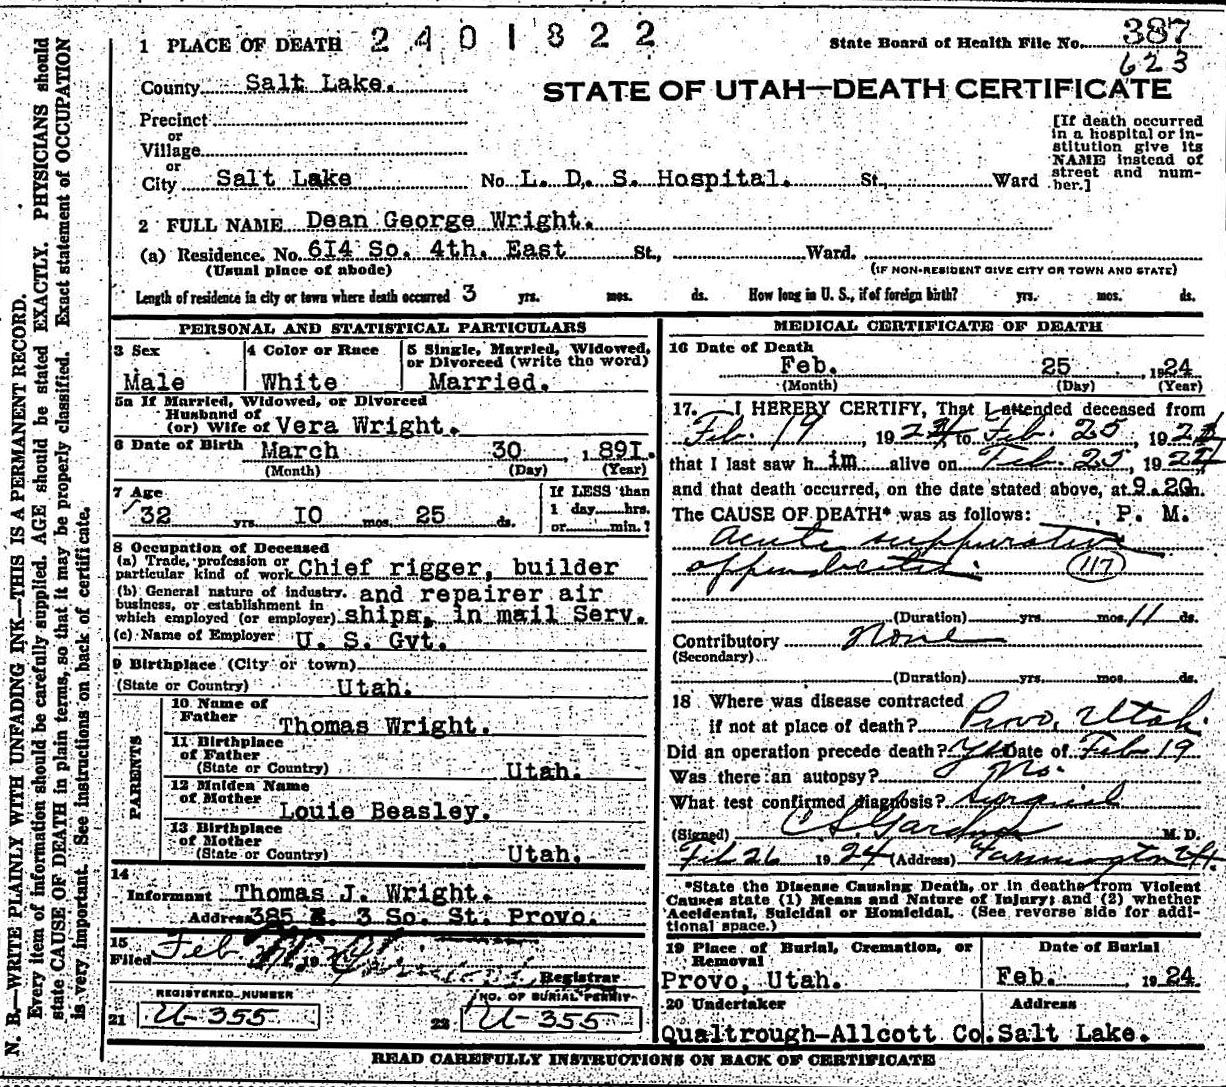 1 PLACE OF DEATH 2401822
State Board of Health File No. 387
623
County Salt Lake.
STATE OF UTAH—DEATH CERTIFICATE
Precinct
or
Village
or
City Salt Lake No L. D. S. Hospital. St., Ward
[If death occurred
in a hospital or in-
stitution give its
NAME instead of
street and num-
ber.]
2 FULL NAME Dean George Wright.
(a) Residence. No. 6I4 So. 4th. East St., Ward.
(Usual place of abode)
(IF NON-RESIDENT GIVE CITY OR TOWN AND STATE)
Length of residence in city or town where death occurred 3 yrs. mos. ds. How long in U. S., if of foreign birth? yrs. mos. ds.
PERSONAL AND STATISTICAL PARTICULARS
3 Sex
Male
4 Color or Race
White
5 Single, Married, Widowed,
or Divorced (write the word)
Married.
5a If Married, Widowed, or Divorced
Husband of
(or) Wife of Vera Wright.
6 Date of Birth March 30 , 189I.
(Month) (Day) (Year)
7 Age
32 yrs. IO mos. 25 ds.
If LESS than
1 day hrs.
or min.?
8 Occupation of Deceased
(a) Trade, profession or
particular kind of work Chief rigger, builder
(b) General nature of industry. and repairer air
business, or establishment in
which employed (or employer) ships, in mail Serv.
(c) Name of Employer U. S. Gvt.
9 Birthplace (City or town)
(State or Country) Utah.
PARENTS
10 Name of
Father Thomas Wright.
11 Birthplace
of Father
(State or Country) Utah.
12 Maiden Name
of Mother
Louie Beasley.
13 Birthplace of
Mother
(State or Country) Utah.
14
Informant Thomas J. Wright.
Address 385 3 So. St. Provo.
15
Filed Feb 19
Registrar
REGISTERED NUMBER
21 U-355
NO. OF BURIAL PERMIT
22 U-355
MEDICAL CERTIFICATE OF DEATH
16 Date of Death
Feb. 25 , 1924
(Month) (Day) (Year)
17. I HEREBY CERTIFY, That I attended deceased from
Feb. 19 , 1924 to Feb. 25 , 1924
that I last saw h im alive on Feb. 25 , 1924
and that death occurred, on the date stated above, at 9.20 m.
The CAUSE OF DEATH* was as follows: P. M.
Acute suppurative
appendicitis. 117
(Duration) yrs. mos. 11 ds.
Contributory None
(Secondary)
(Duration) yrs. mos. ds.
18 Where was disease contracted
if not at place of death? Provo, Utah.
Did an operation precede death? Yes Date of Feb 19
Was there an autopsy? No.
What test confirmed diagnosis? Surgical
(Signed) M. D.
Feb 26 1924 (Address) Farmington Ut.
*State the Disease Causing Death, or in deaths from Violent
Causes state (1) Means and Nature of Injury; and (2) whether
Accidental, Suicidal or Homicidal. (See reverse side for addi-
tional space.)
19 Place of Burial, Cremation, or
Removal
Provo, Utah.
Date of Burial
Feb. 1924
20 Undertaker
Qualtrough-Allcott Co.
Address
Salt Lake.
READ CAREFULLY INSTRUCTIONS ON BACK OF CERTIFICATE
N. B.—WRITE PLAINLY WITH UNFADING INK—THIS IS A PERMANENT RECORD.
Every item of information should be carefully supplied. AGE should be stated EXACTLY. PHYSICIANS should
state CAUSE OF DEATH in plain terms, so that it may be properly classified. Exact statement of OCCUPATION
is very important. See instructions on back of certificate.